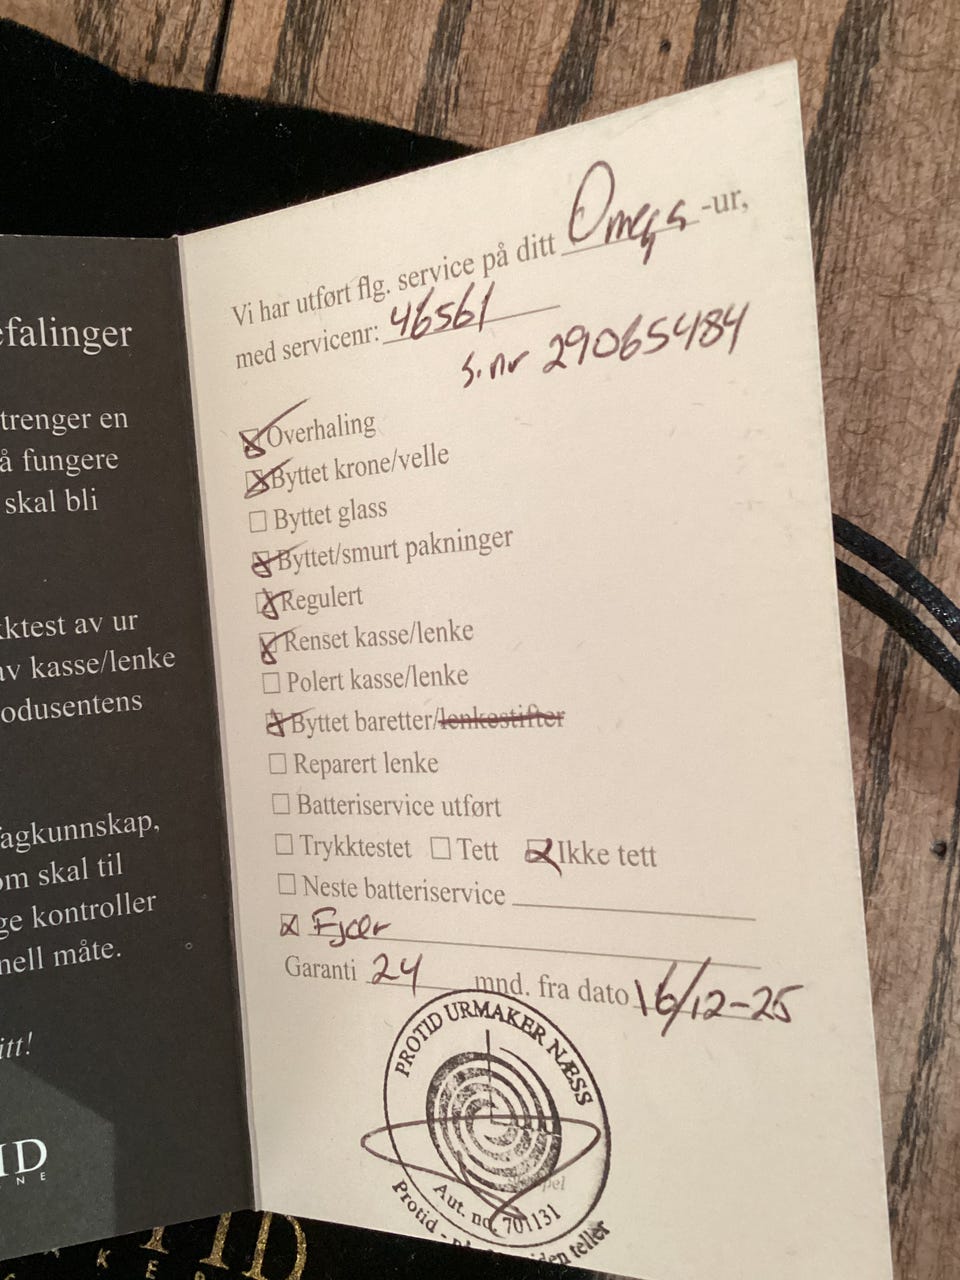 efalinger
trenger en
å fungere
skal bli
ktest av ur
av kasse/lenke
odusentens
fagkunnskap,
om skal til
ge kontroller
nell måte.
itt!
ID
N E
Vi har utført flg. service på ditt Omega -ur,
med servicenr: 46561
s.nr 29065484
Overhaling
Byttet krone/velle
Byttet glass
Byttet/smurt pakninger
Regulert
Renset kasse/lenke
Polert kasse/lenke
Byttet baretter/lenkestifter
Reparert lenke
Batteriservice utført
Trykktestet Tett Ikke tett
Neste batteriservice
Fjær
Garanti 24 mnd. fra dato 16/12-25
PROTID URMAKER NÆSS
Aut. no. 701131
Protid - når tiden teller
TID
K E